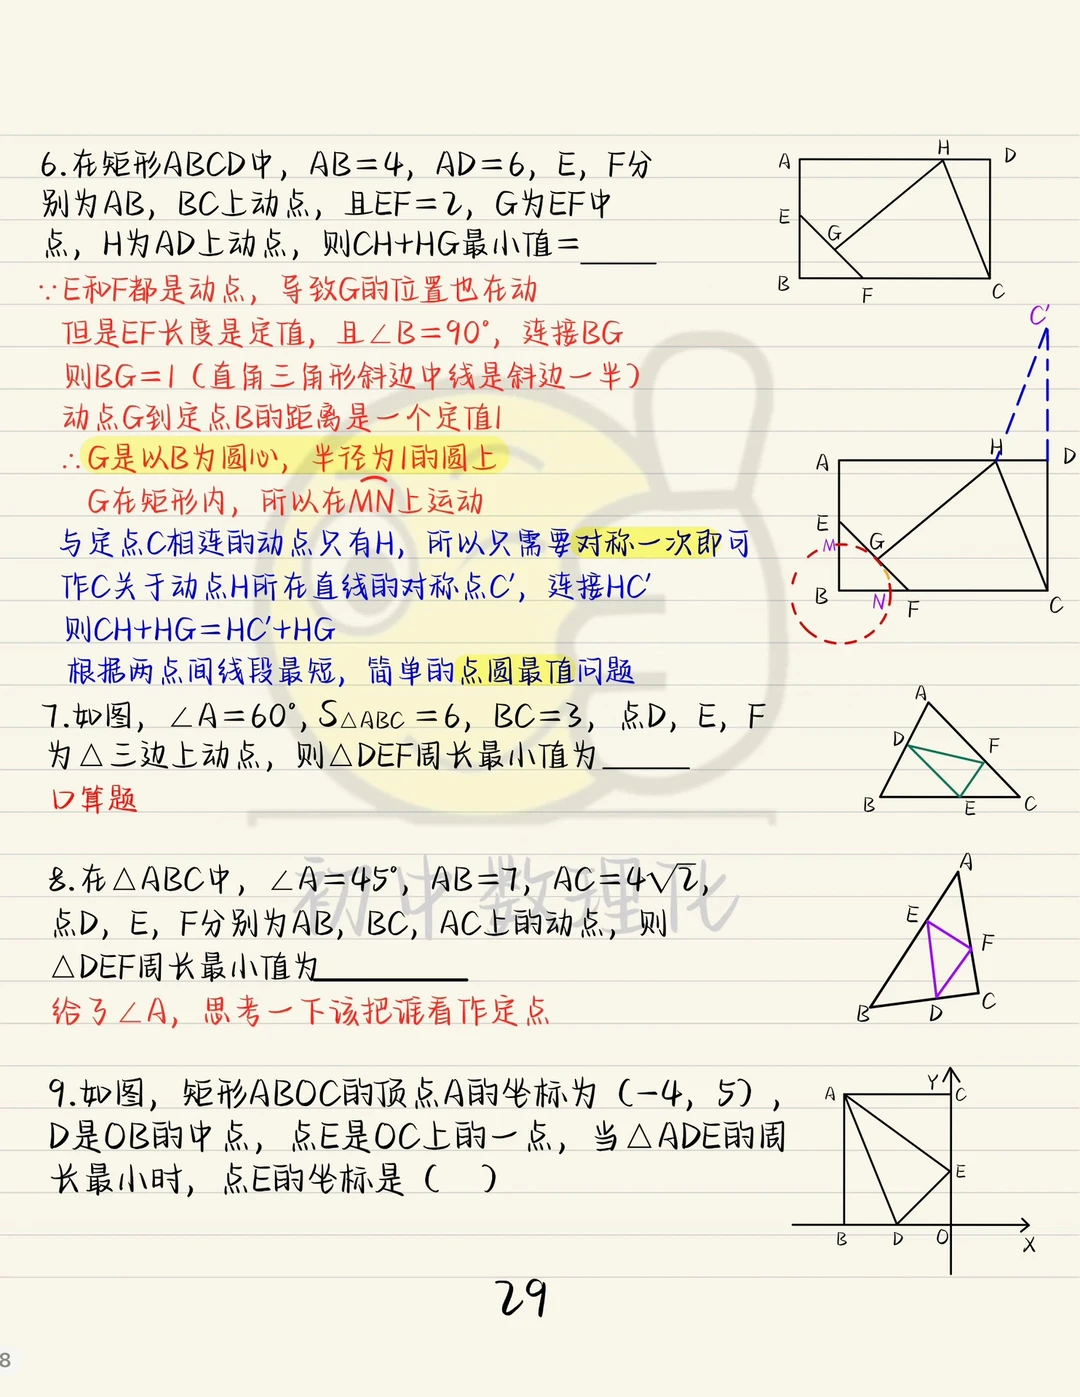 6.在矩形ABCD中，AB=4，AD=6，E，F分
别为AB，BC上动点，且EF=2，G为EF中
点，H为AD上动点，则CH+HG最小值=____
A
H
D
E
G
B
F
C
∵E和F都是动点，导致G的位置也在动
但是EF长度是定值，且∠B=90°，连接BG
则BG=1（直角三角形斜边中线是斜边一半）
动点G到定点B的距离是一个定值1
∴G是以B为圆心，半径为1的圆上
G在矩形内，所以在MN上运动
与定点C相连的动点只有H，所以只需要对称一次即可
作C关于动点H所在直线的对称点C′，连接HC′
则CH+HG=HC′+HG
根据两点间线段最短，简单的点圆最值问题
C′
A
H
D
E
M
G
B
N
F
C
7.如图，∠A=60°，S△ABC=6，BC=3，点D，E，F
为△三边上动点，则△DEF周长最小值为____
口算题
A
D
F
B
E
C
初中数理化
8.在△ABC中，∠A=45°，AB=7，AC=4√2，
点D，E，F分别为AB，BC，AC上的动点，则
△DEF周长最小值为____
给了∠A，思考一下该把谁看作定点
A
E
F
B
D
C
9.如图，矩形ABOC的顶点A的坐标为（-4，5），
D是OB的中点，点E是OC上的一点，当△ADE的周
长最小时，点E的坐标是（ ）
Y
A
C
E
B
D
O
X
29
8